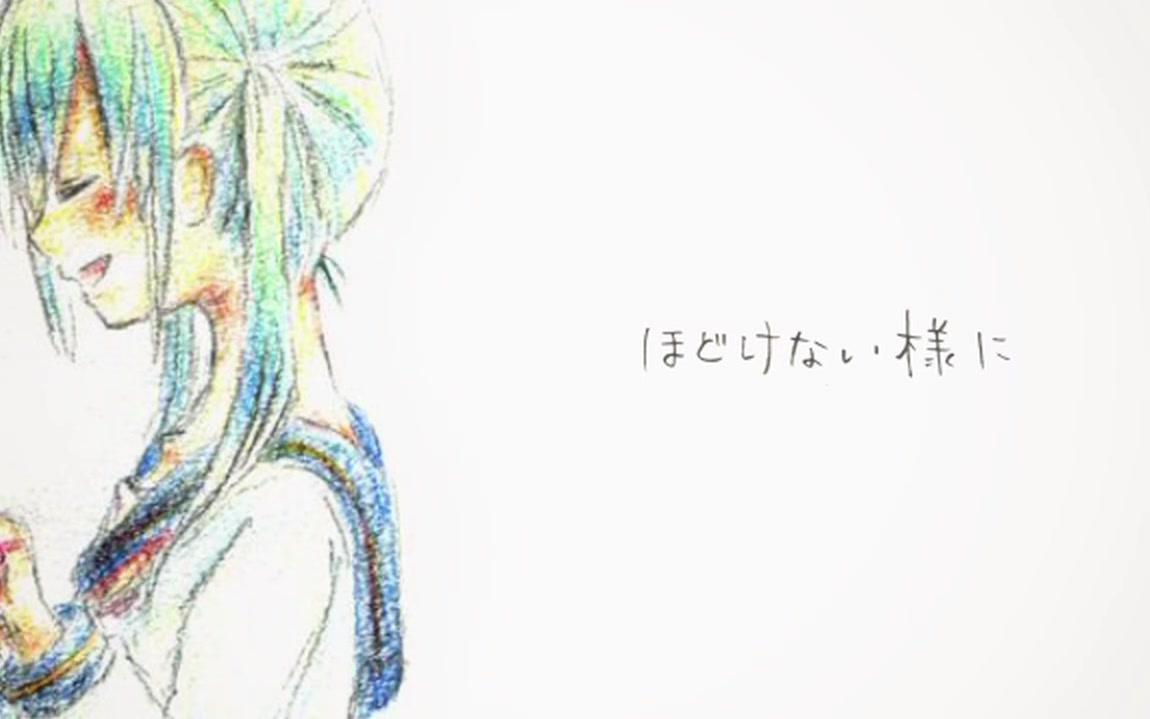 ほどけない様に